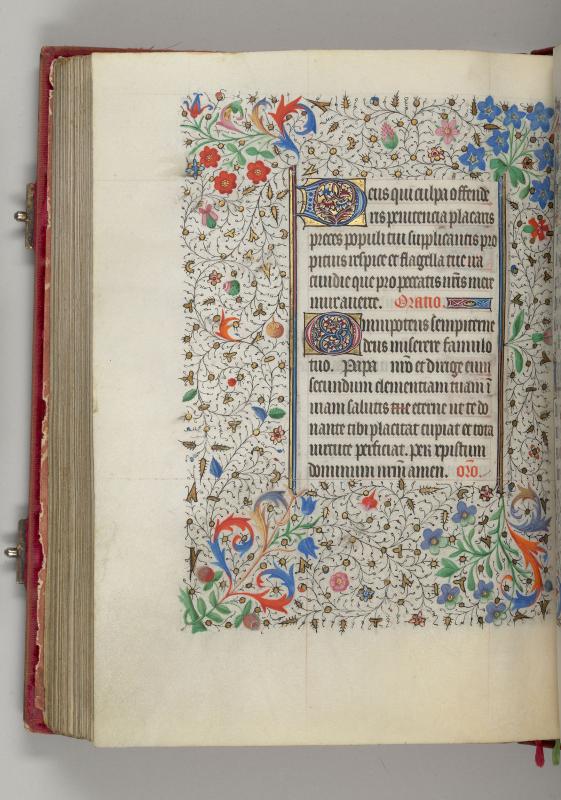 Deus qui culpa offende
ris penitencia placaris
preces populi tui supplicantis pro
picius respice et flagella tue ira
cundie que pro peccatis nr̄is mere
mur auerte. Oratio.
Omnipotens sempiterne
deus miserere famulo
tuo. Papa nr̄o et dirige eum
secundum clementiam tuam ī
uiam salutis tue eterne ut te do
nante tibi placitat cupiat et tota
uirtute perficiat. Per xpistum
dominum nr̄m amen. Orō.